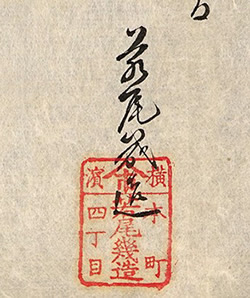 若尾幾造
横濱
本町
四丁目
若尾幾造